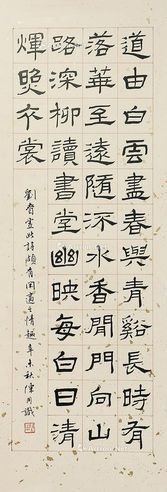 道由白雲盡春與青谿長時有
落華至遠隨流水香閒門向山
路深柳讀書堂幽映每白日清
煇照衣裳
劉眘虛此詩頗有閒適之情趣辛未秋陳